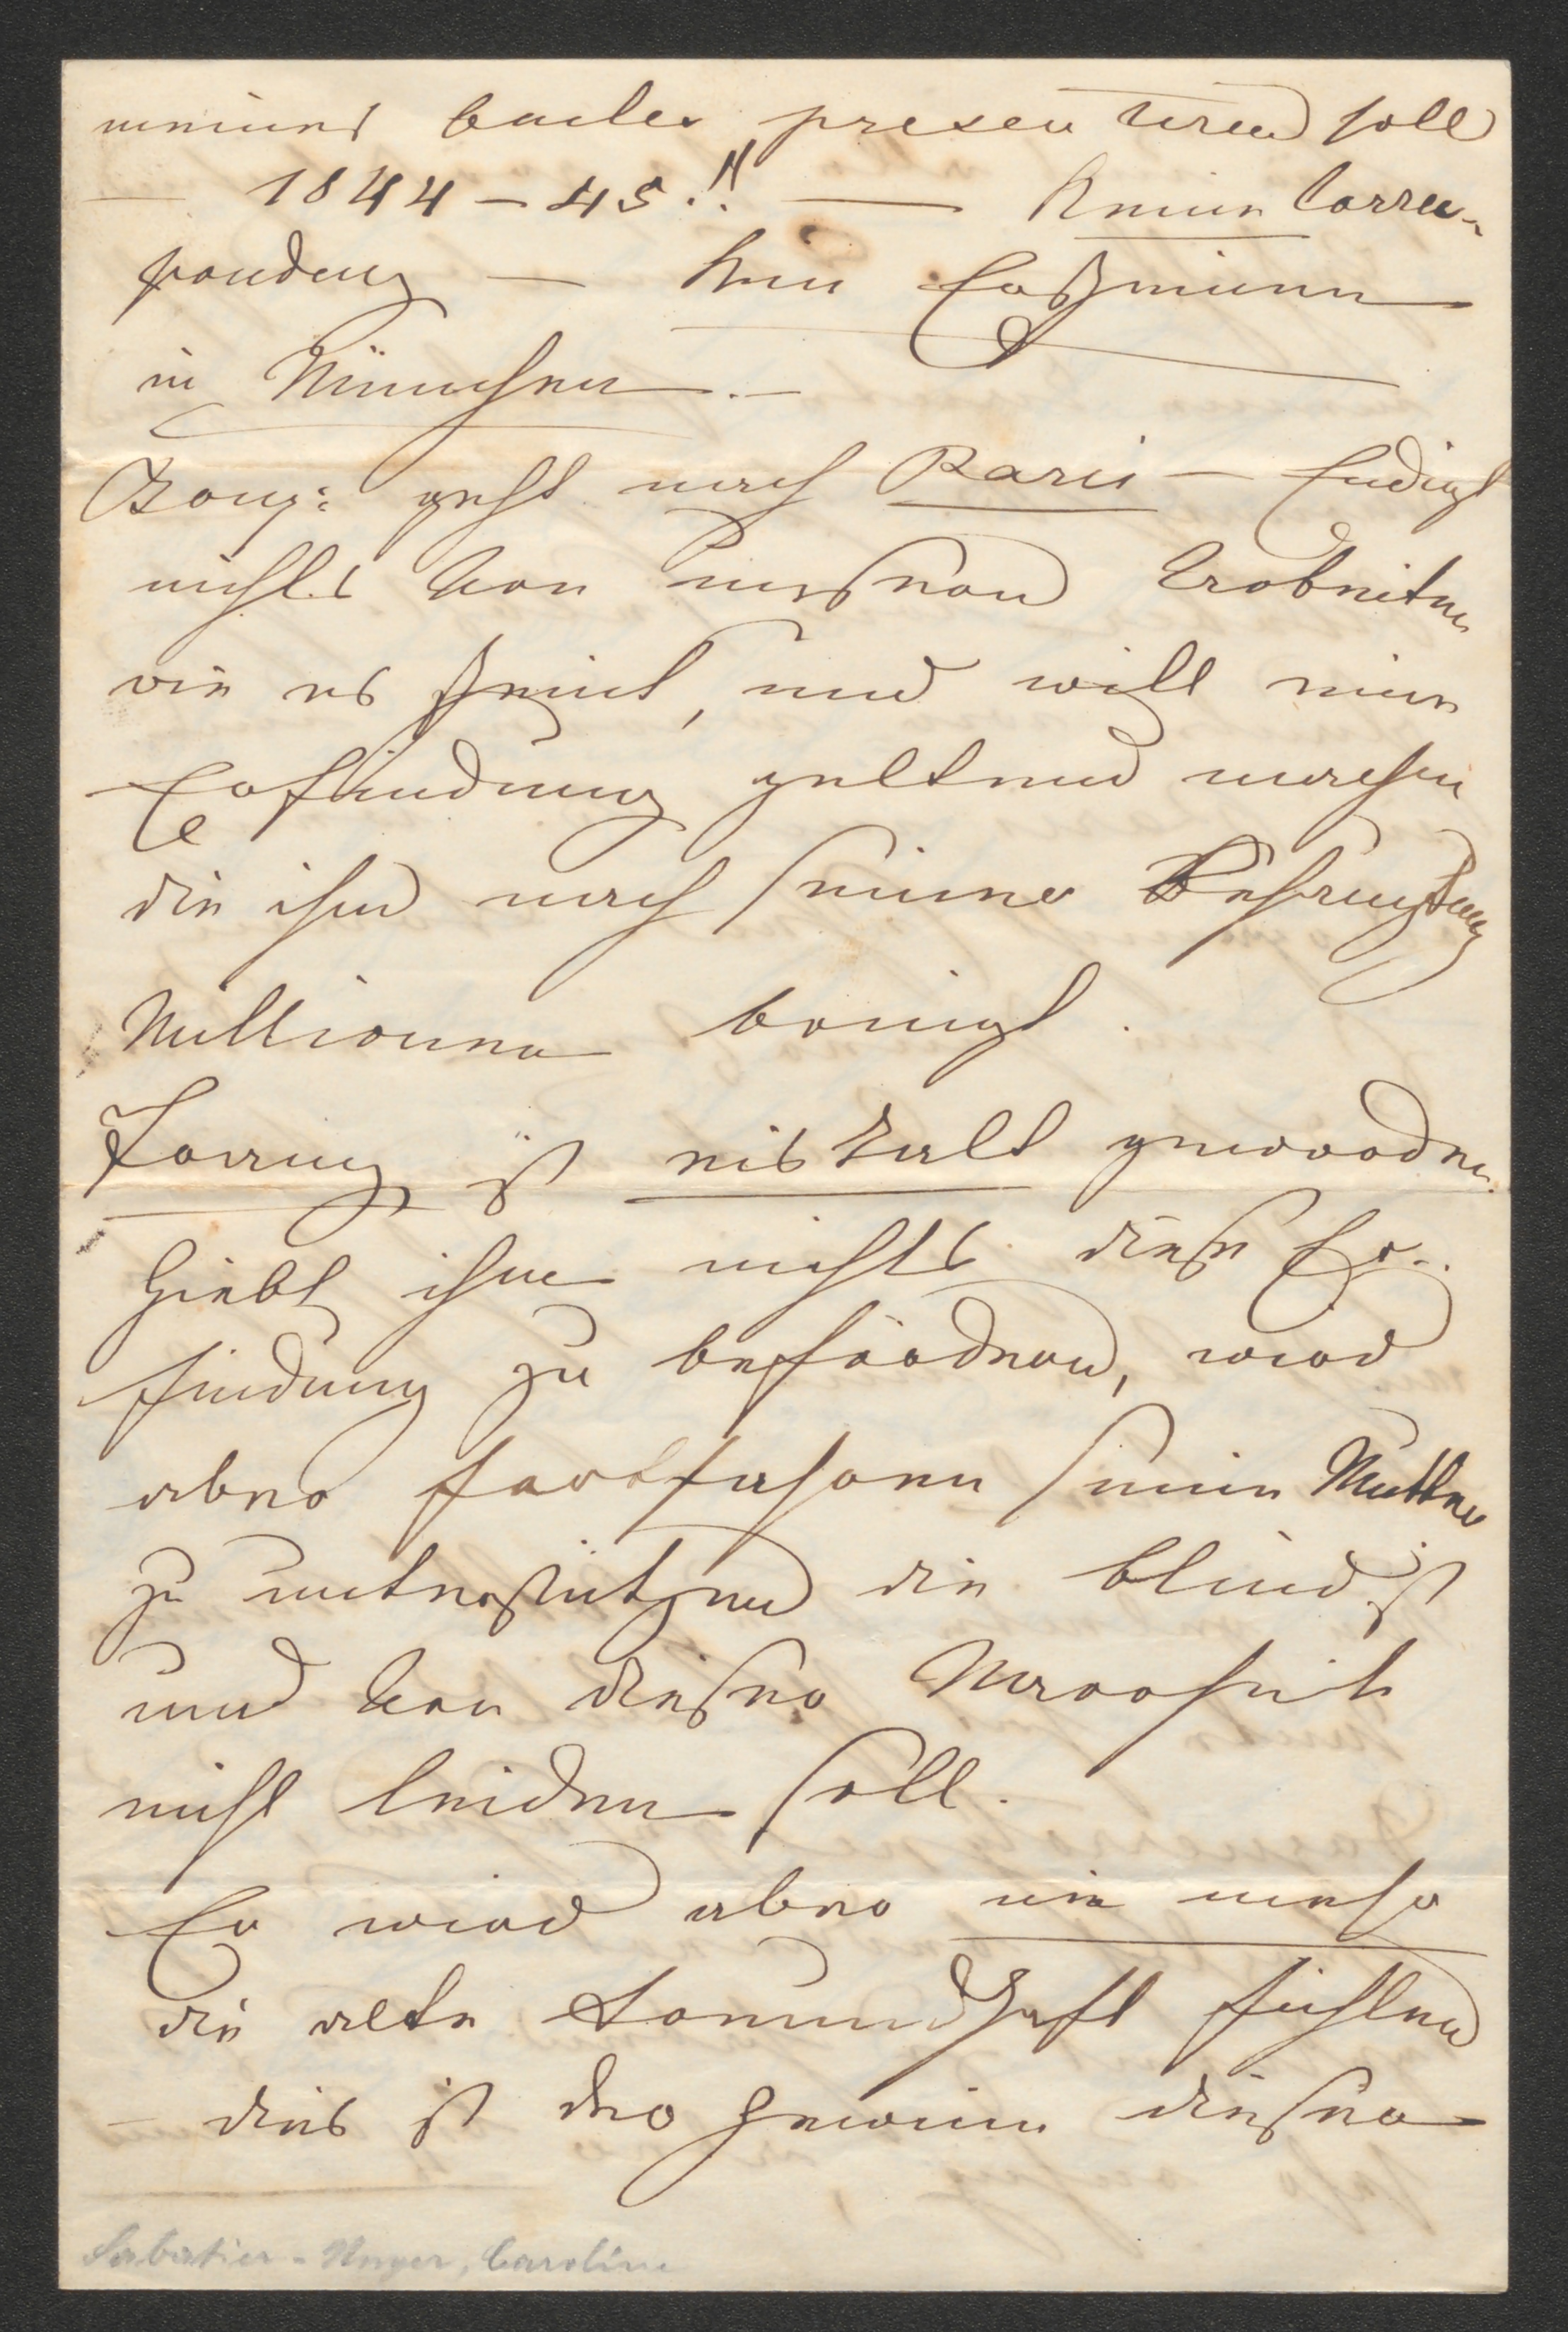 meines bailes presentiren soll
— 1844–45.!! — Keine Corres-
pondenz — kein Erscheinen
in München. —
Bong: geht nach Paris — Endigt
nichts von unseren Arbeiten
wie es scheint, und will eine
Erfindung geltend machen
die ihm nach seiner Behauptung
Millionen bringt.
Lorenz ist eiskalt geworden.
Giebt ihm nichts diese Er-
findung zu befördern, wird
aber fortfahren seine Mutter
zu unterstützen die blind ist
und von dieser Narrheit
nicht leiden soll.
Er wird aber nie mehr
die alte Freundschaft fühlen
— dies ist der Gewinn dieser
Sabatier-Unger, Caroline